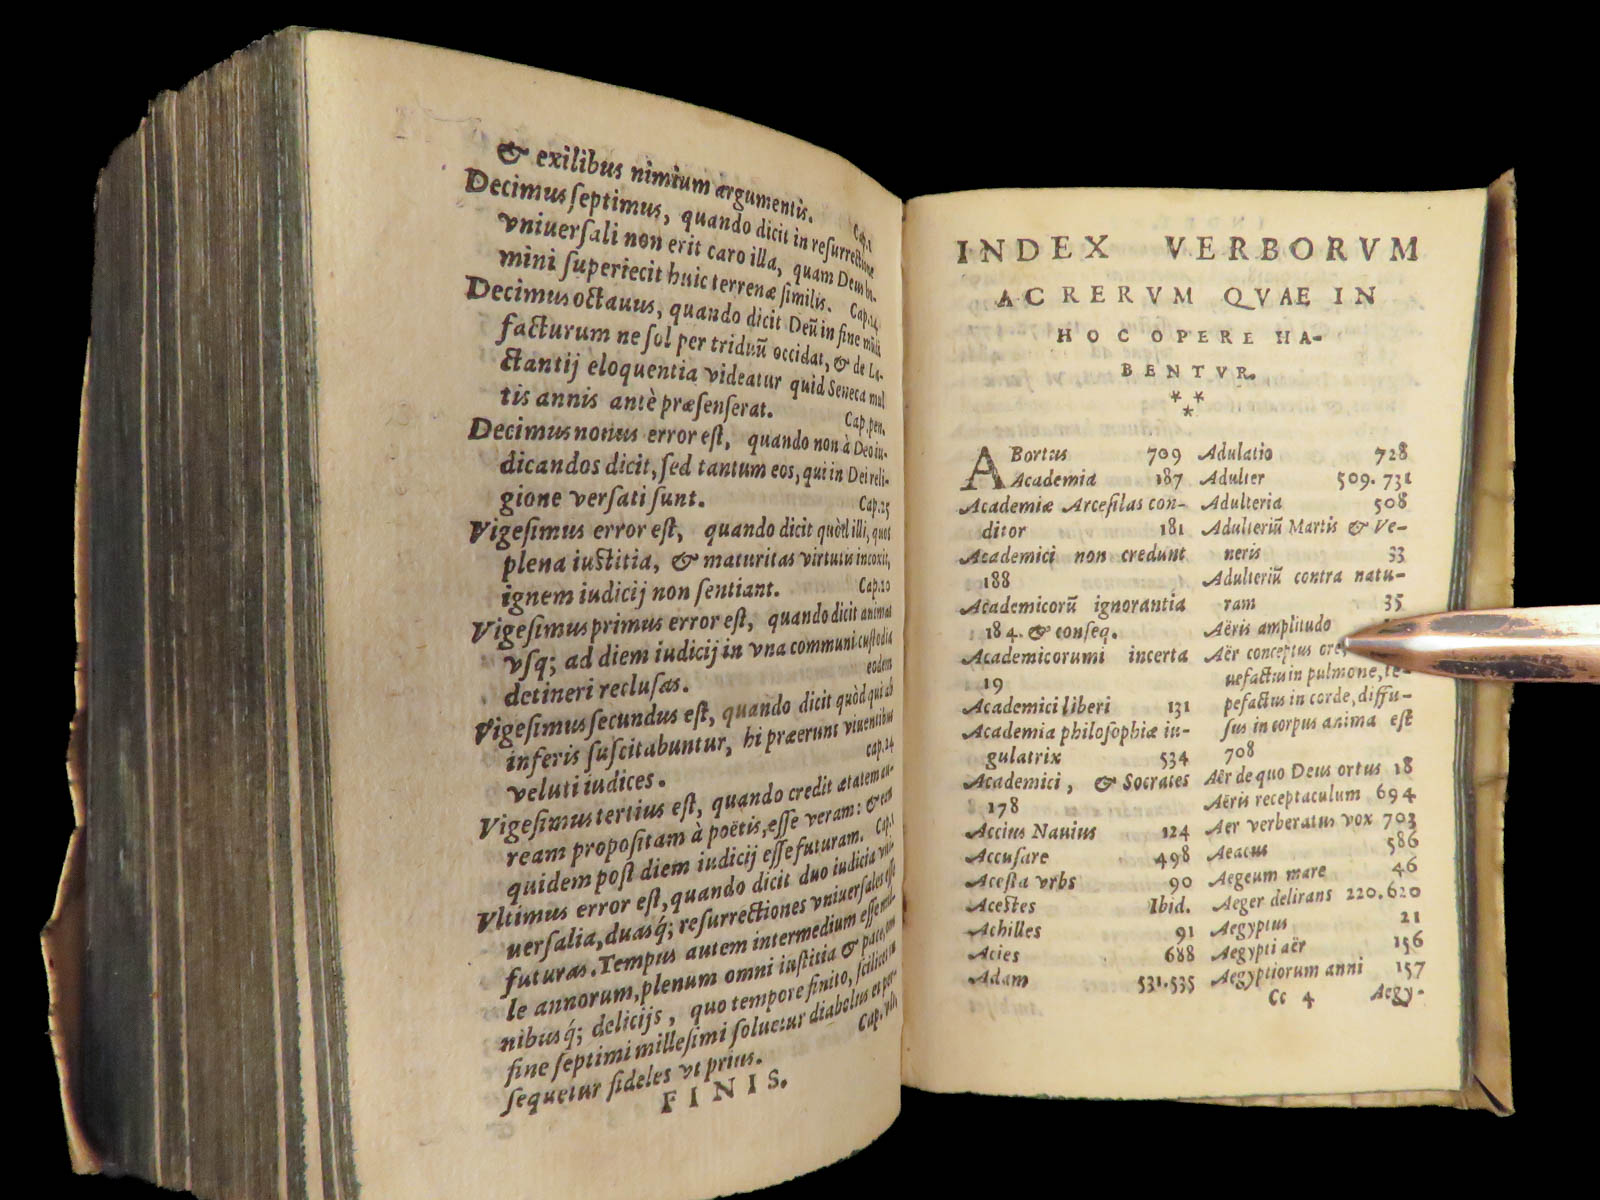 & exilibus nimium argumentis.
Cap.1
Decimus septimus, quando dicit in resurrectione
vniuersali non erit caro illa, quam Deus ho-
mini superiecit huic terrenæ similis. Cap.24
Decimus octauus, quando dicit Deũ in fine mũdi
facturum ne sol per triduũ occidat, & de La-
ctantij eloquentia videatur quid Seneca mul
tis annis antè præsenserat. Cap.pen.
Decimus nonus error est, quando non à Deo iu-
dicandos dicit, sed tantum eos, qui in Dei reli-
gione versati sunt. Cap.25
Vigesimus error est, quando dicit quòd illi, quos
plena iustitia, & maturitas virtutis incoxit,
ignem iudicij non sentiant. Cap.20
Vigesimus primus error est, quando dicit animas
vsq; ad diem iudicij in vna communi custodia
detineri reclusas. eodem
Vigesimus secundus est, quando dicit quòd qui ab
inferis suscitabuntur, hi præerunt viuentibus
veluti iudices. cap.24
Vigesimus tertius est, quando credit ætatem au-
ream propositam à poëtis, esse veram: & eam
quidem post diem iudicij esse futuram. Cap.
Vltimus error est, quando dicit duo iudicia vni-
uersalia, duasq́; resurrectiones vniuersales esse
futuras. Tempus autem intermedium esse mil-
le annorum, plenum omni iustitia & pace, om
nibusq́; delicijs, quo tempore finito, scilicet in
fine septimi millesimi soluetur diabolus et per-
sequetur fideles vt prius. Cap. vlt.
FINIS.
INDEX VERBORVM
AC RERVM QVAE IN
HOC OPERE HA-
BENTVR.
* * *
ABortus 709
Academia 187
Academiæ Arcesilas con-
ditor 181
Academici non credunt
188
Academicorũ ignorantia
184. & conseq.
Academicorum incerta
19
Academici liberi 131
Academia philosophiæ iu-
gulatrix 534
Academici, & Socrates
178
Accius Nauius 124
Accusare 498
Acesta vrbs 90
Acestes Ibid.
Achilles 91
Acies 688
Adam 531.535
Adulatio 728
Adulter 509.731
Adulteria 508
Adulteriũ Martis & Ve-
neris 33
Adulteriũ contra natu-
ram 35
Aëris amplitudo
Aër conceptus ore
uefactus in pulmone, te-
pefactus in corde, diffu-
sus in corpus anima est
708
Aër de quo Deus ortus 18
Aëris receptaculum 694
Aer verberatus vox 703
Aeacus 586
Aegeum mare 46
Aeger delirans 220.620
Aegyptus 21
Aegypti aër 156
Aegyptiorum anni 157
Cc 4 Aegy-